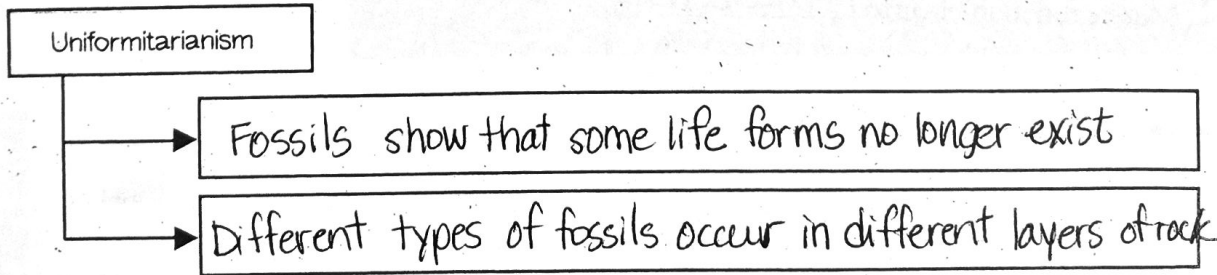 Uniformitarianism
Fossils show that some life forms no longer exist
Different types of fossils occur in different layers of rock